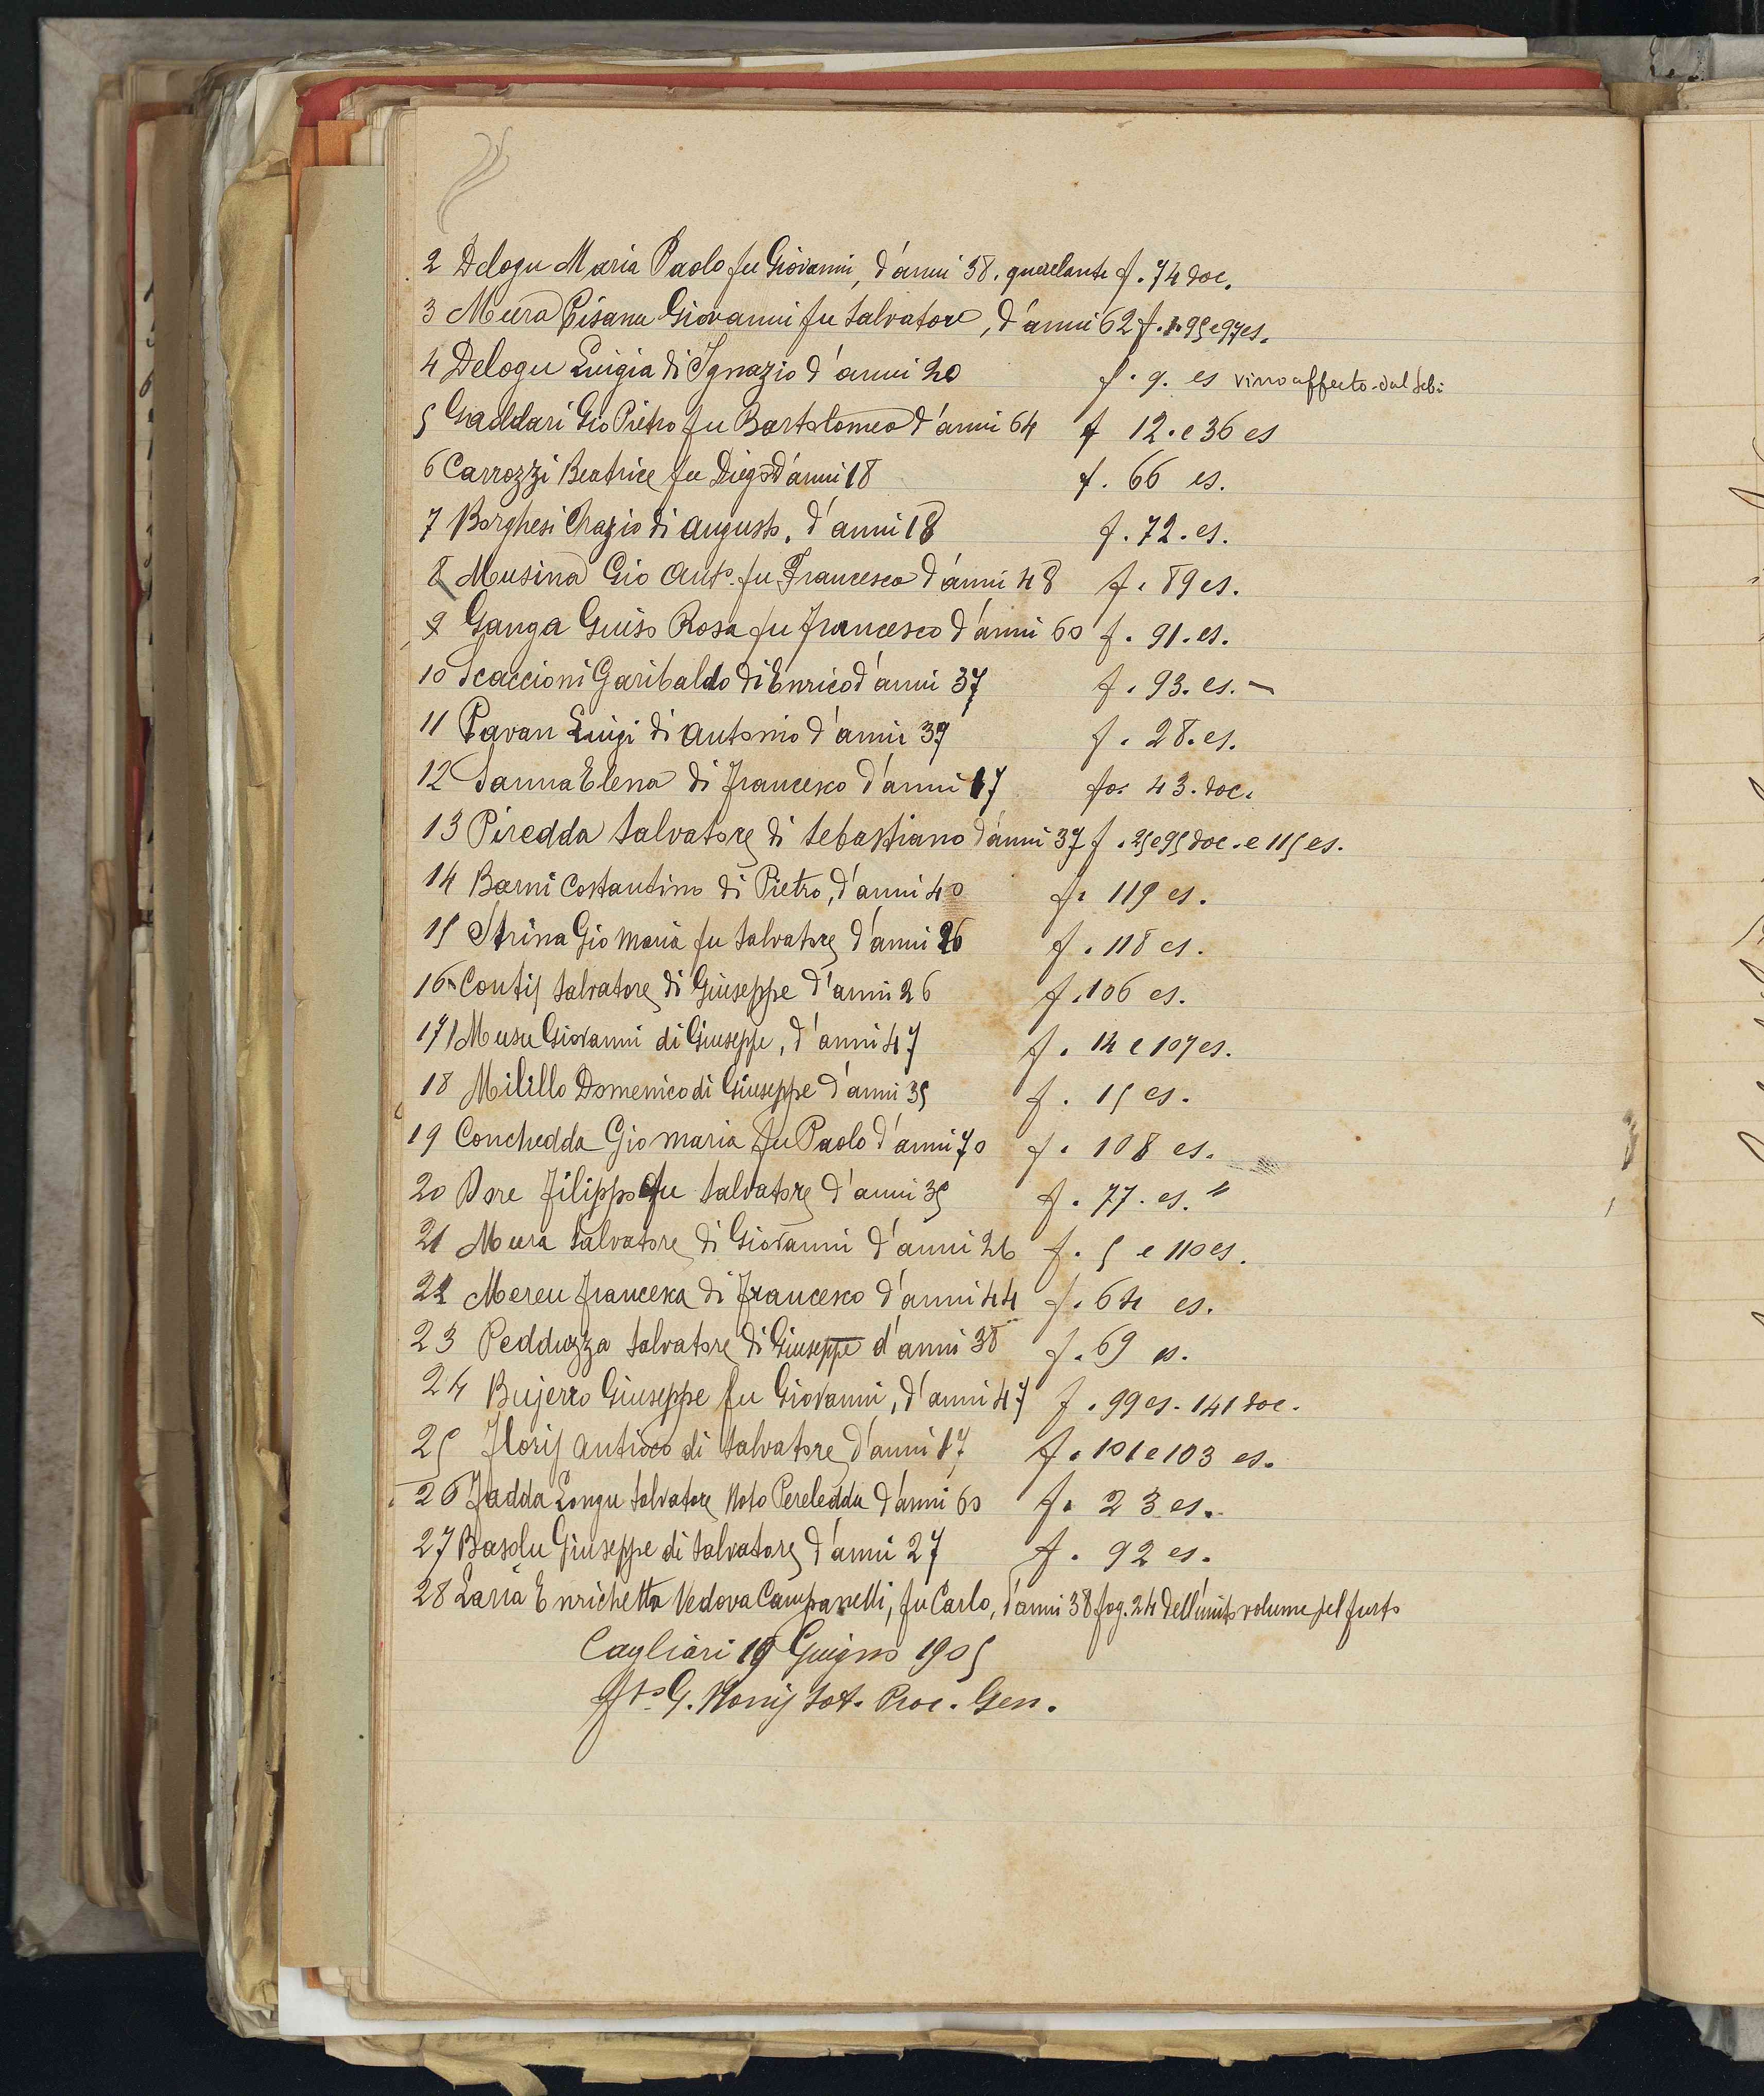 2 Delogu Maria Paolo fu Giovanni, d'anni 38. querelante f. 74 doc.
3 Mura Pisanu Giovanni fu Salvatore, d'anni 62 f. 1. 95 e 97 es.
4 Delogu Luigia di Ignazio d'anni 20 f. 9. es
5 Gaddari Gio Pietro fu Bartolomeo d'anni 64 f 12. e 36 es
6 Carrozzi Beatrice fu Diego d'anni 18 f. 66 es.
7 Borghesi Orazio di Augusto. d'anni 18 f. 72. es.
8 Musina Gio Anto. fu Francesco d'anni 48 f. 89 es.
9 Ganga Guiso Rosa fu Francesco d'anni 60 f. 91. es.
10 Scaccioni Garibaldo di Enrico d'anni 37 f. 93. es. -
11 Pavan Luigi di Antonio d'anni 39 f. 28. es.
12 Sanna Elena di Francesco d'anni 17 fo. 43. doc.
13 Piredda Salvatore di Sebastiano d'anni 37 f. 25 e 95 doc. e 115 es.
14 Barni Costantino di Pietro, d'anni 40 f. 119 es.
15 Strina Gio Maria fu Salvatore d'anni 26 f. 118 es.
16 Contis Salvatore di Giuseppe d'anni 26 f. 106 es.
17 Musu Giovanni di Giuseppe, d'anni 47 f. 14 e 107 es.
18 Milillo Domenico di Giuseppe d'anni 35 f. 15 es.
19 Conchedda Gio Maria fu Paolo d'anni 70 f. 108 es.
20 Dore Filippo fu Salvatore d'anni 35 f. 77. es. "
21 Mura Salvatore di Giovanni d'anni 26 f. 5 e 110 es.
22 Mereu Francesca di Francesco d'anni 44 f. 64 es.
23 Pedduzza Salvatore di Giuseppe d'anni 38 f. 69 es.
24 Bujerro Giuseppe fu Giovanni, d'anni 47 f. 99 es. 141 doc.
25 Floris Antioco di Salvatore d'anni 17 f. 101 e 103 es.
26 Fadda Longu Salvatore Noto Pereleddu d'anni 60 f. 23 es.
27 Basolu Giuseppe di Salvatore d'anni 27 f. 92 es.
28 Laria Enrichetta Vedova Campanelli, fu Carlo, d'anni 38 fog. 24 dell'unito volume pel furto
Cagliari 19 Giugno 1905
fto. G. Nonis Sost. Proc. Gen.